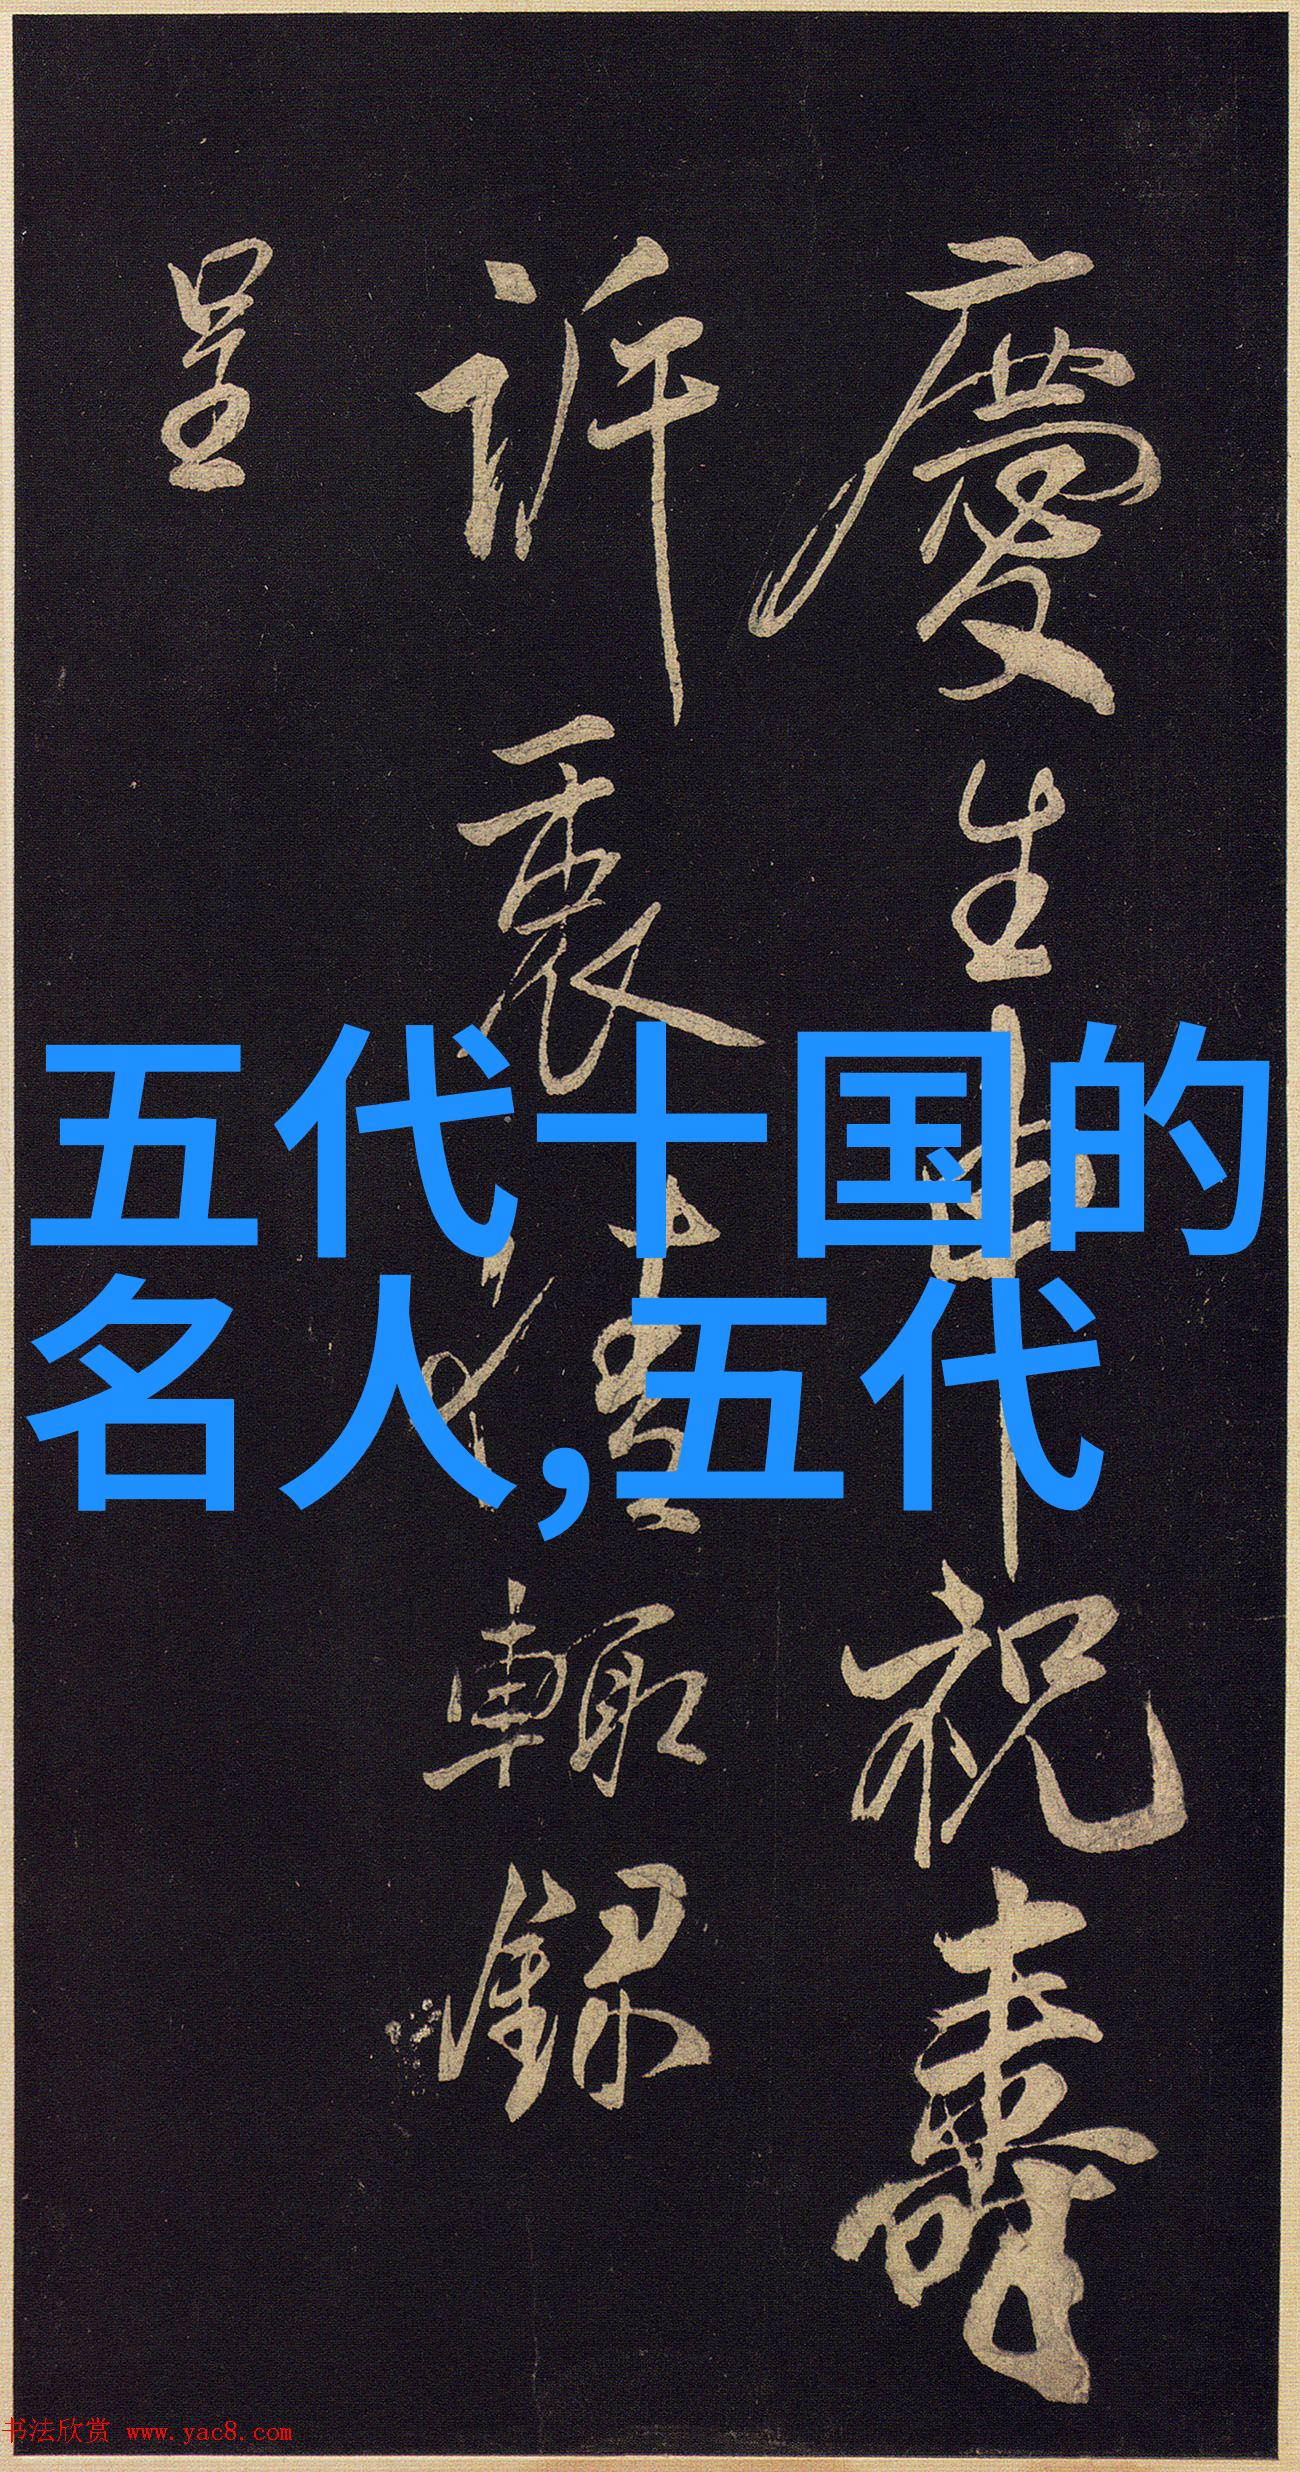 慶生申祝壽
訴衷情輒錄
呈
五代十国的
名人,五代
书法欣赏 www.yac8.com